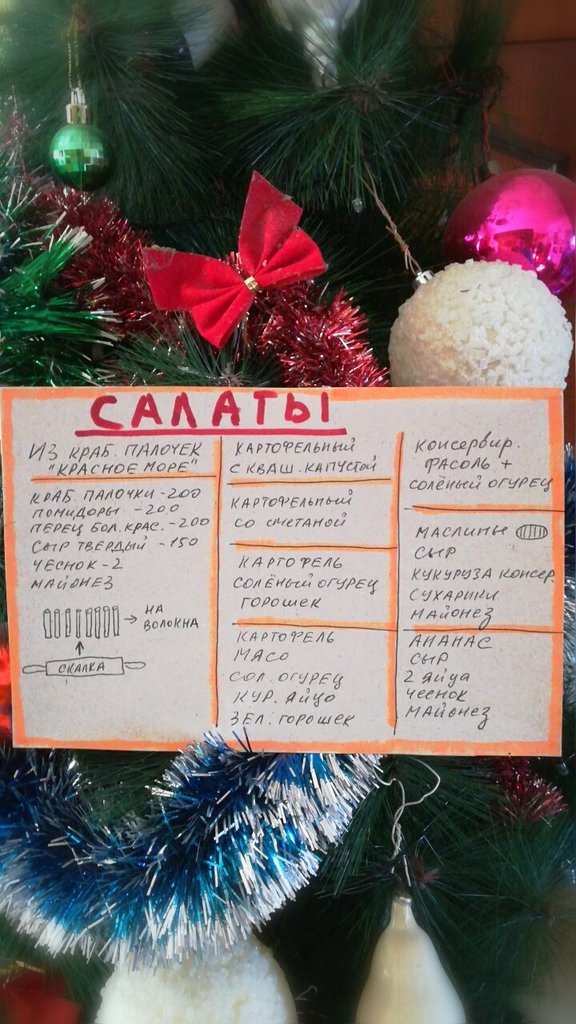 САЛАТЫ
ИЗ КРАБ. ПАЛОЧЕК
"КРАСНОЕ МОРЕ"
КРАБ. ПАЛОЧКИ - 200
ПОМИДОРЫ - 200
ПЕРЕЦ БОЛ. КРАС. - 200
СЫР ТВЕРДЫЙ - 150
ЧЕСНОК - 2
МАЙОНЕЗ
НА
ВОЛОКНА
СКАЛКА
КАРТОФЕЛЬНЫЙ
С КВАШ. КАПУСТОЙ
КАРТОФЕЛЬНЫЙ
СО СМЕТАНОЙ
КАРТОФЕЛЬ
СОЛЁНЫЙ ОГУРЕЦ
ГОРОШЕК
КАРТОФЕЛЬ
МЯСО
СОЛ. ОГУРЕЦ
КУР. ЯЙЦО
ЗЕЛ. ГОРОШЕК
КОНСЕРВИР.
ФАСОЛЬ +
СОЛЁНЫЙ ОГУРЕЦ
МАСЛИНЫ
СЫР
КУКУРУЗА КОНСЕР.
СУХАРИКИ
МАЙОНЕЗ
АНАНАС
СЫР
2 ЯЙЦА
ЧЕСНОК
МАЙОНЕЗ